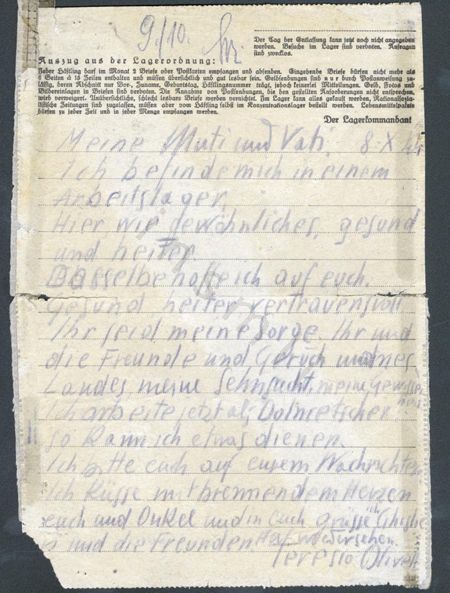 9/10.
Der Tag der Entlassung kann jetzt noch nicht angegeben
werden. Besuche im Lager sind verboten. Anfragen
sind zwecklos.
Auszug aus der Lagerordnung:
Jeder Häftling darf im Monat 2 Briefe oder Postkarten empfangen und absenden. Eingehende Briefe dürfen nicht mehr als
4 Seiten à 15 Zeilen enthalten und müssen übersichtlich und gut lesbar sein. Geldsendungen sind nur durch Postanweisung zu-
lässig, deren Abschnitt nur Vor-, Zuname, Geburtstag, Häftlingsnummer trägt, jedoch keinerlei Mitteilungen. Geld, Fotos und
Bildereinlagen in Briefen sind verboten. Die Annahme von Postsendungen, die den gestellten Anforderungen nicht entsprechen,
wird verweigert. Unübersichtliche, schlecht lesbare Briefe werden vernichtet. Im Lager kann alles gekauft werden. Nationalsozia-
listische Zeitungen sind zugelassen, müssen aber vom Häftling selbst im Konzentrationslager bestellt werden. Lebensmittelpakete
dürfen zu jeder Zeit und in jeder Menge empfangen werden.
Der Lagerkommandant
Meine Muti und Vati, 8. X 44
Ich befinde mich in einem
Arbeitslager.
Hier wie gewöhnliches, gesund
und heiter.
Dasselbe hoffe ich auf euch.
Gesund heiter vertrauensvoll
Ihr seid meine Sorge Ihr und
die Freunde und Geruch
Landes meine Sehnsucht, meine
Ich arbeite jetzt als Dolmetscher
so kann ich etwas dienen.
Ich bitte euch auf eurem Nachrichten
Ich Küsse mit brennendem Herzen
euch und Onkel und in euch grüsse ich
und die Freunden Auf wiedersehen.
Teresio Olivelli